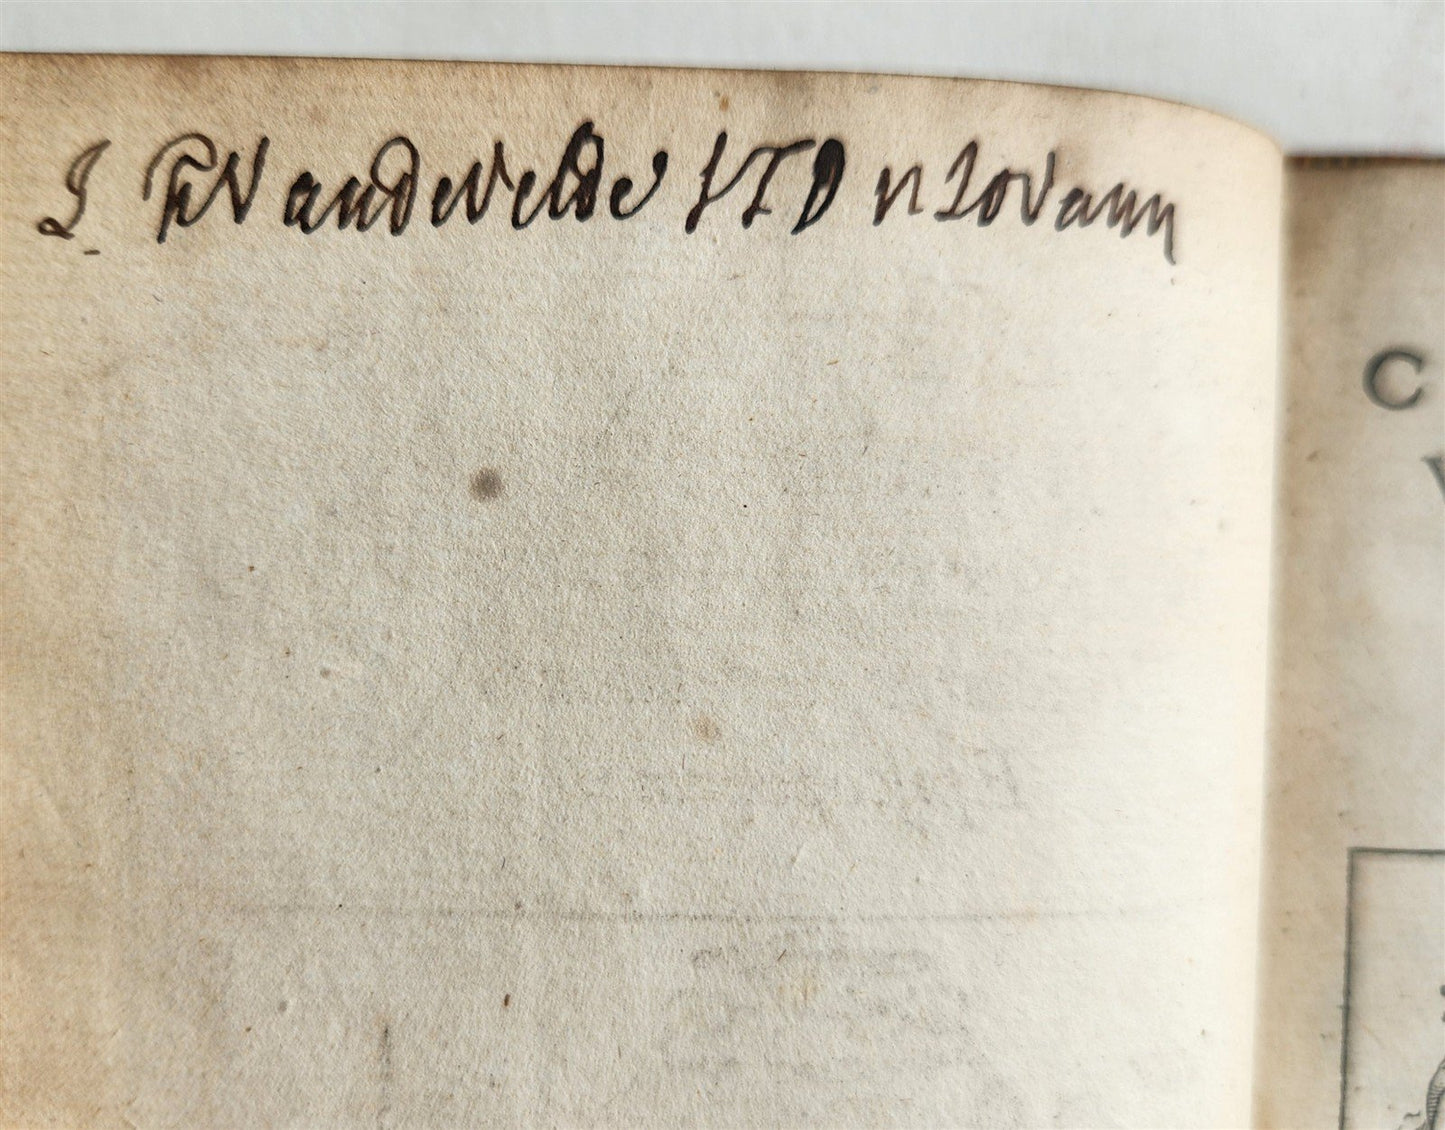 J. Fr Vandevelde STD n Lovann
C